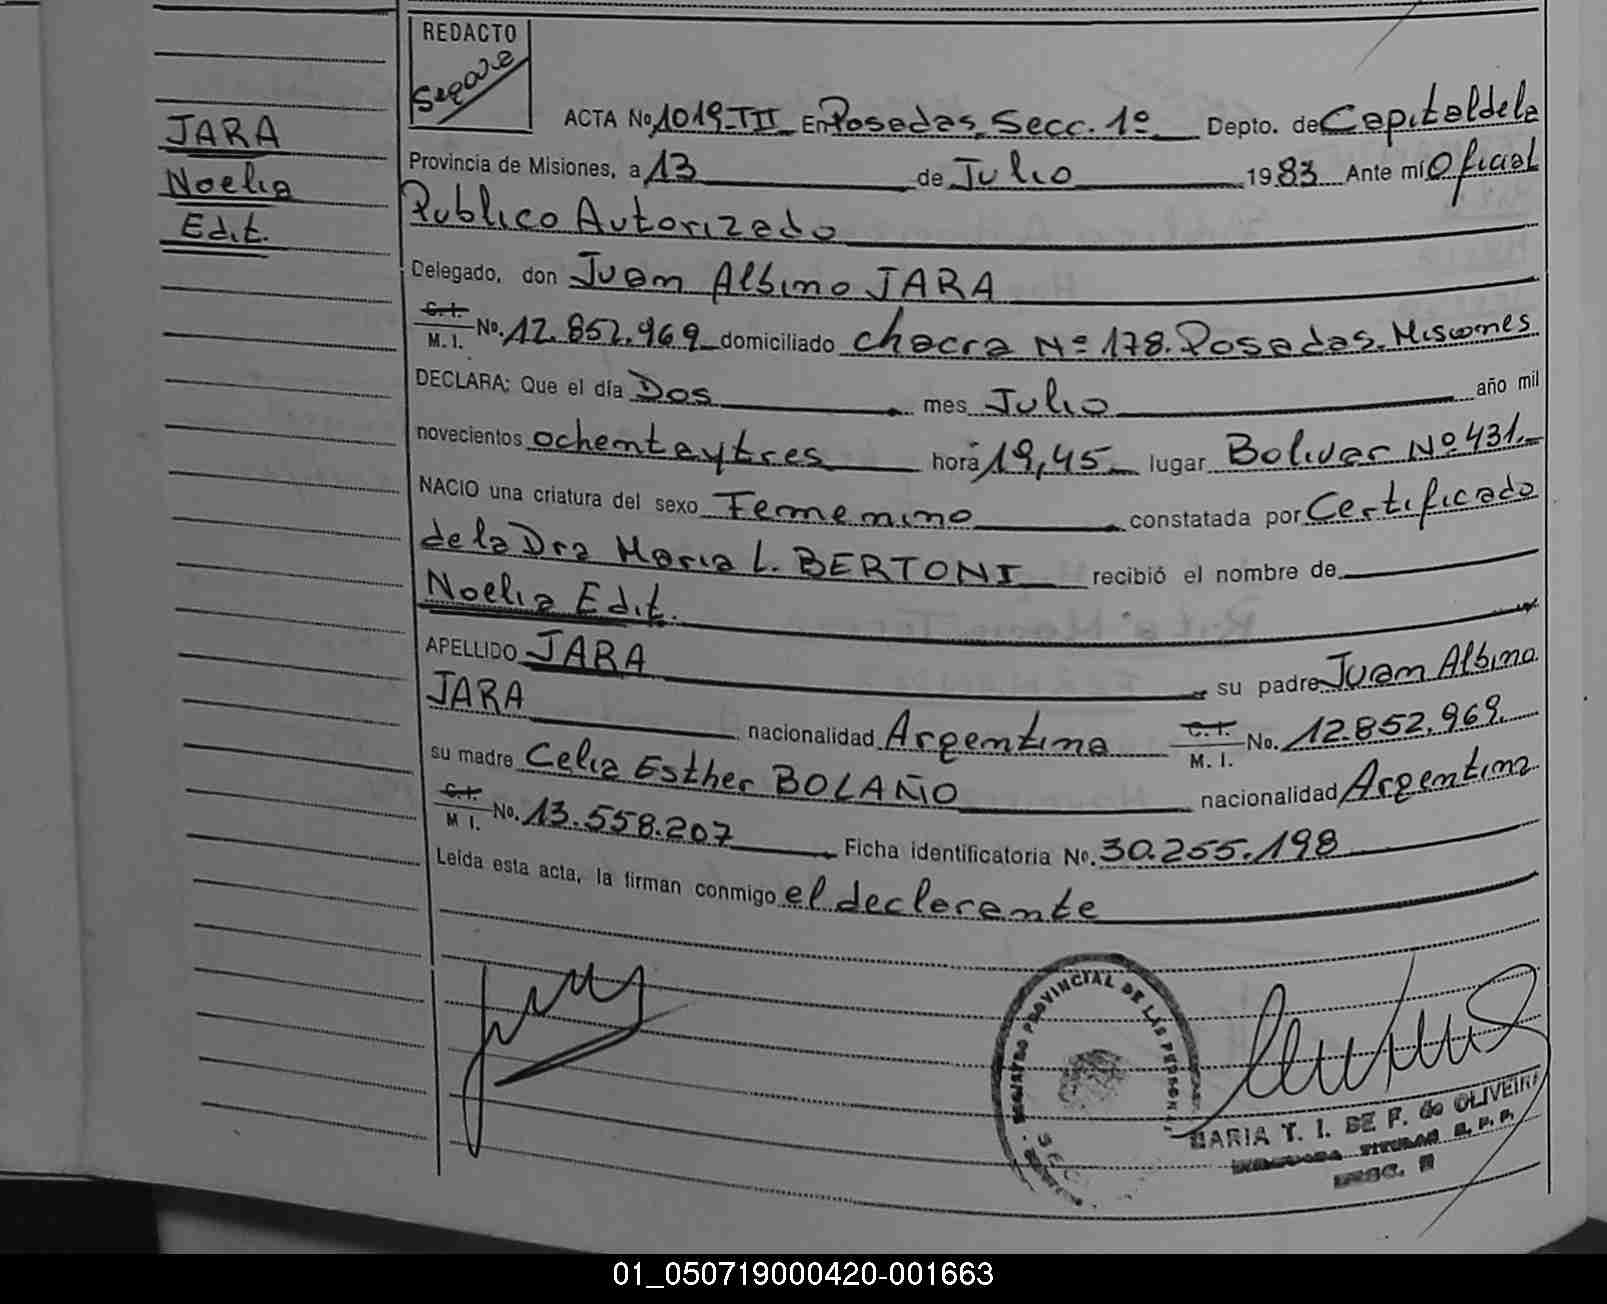 REDACTO
JARA
Noelia
Edit.
ACTA No 1019-III En Posadas, Secc. 1º Depto. de Capital de la
Provincia de Misiones, a 13 de Julio 1983 Ante mí Oficial
Publico Autorizado
Delegado, don Juan Albino JARA
C.I. M. I. No. 12.852.969 domiciliado chacra Nº 178. Posadas. Misiones
DECLARA: Que el día Dos mes Julio año mil
novecientos ochenta y tres hora 19,45 lugar Bolivar Nº 431.
NACIO una criatura del sexo Femenino constatada por Certificado
de la Dra Maria L. BERTONI recibió el nombre de
Noelia Edit.
APELLIDO JARA su padre Juan Albino
JARA nacionalidad Argentina C.I. M. I. No. 12.852.969.
su madre Celia Esther BOLAÑO nacionalidad Argentina
C.I. M I. No. 13.558.207 Ficha identificatoria No. 30.255.198
Leída esta acta, la firman conmigo el declarante
PROVINCIAL DE LAS PERSON
MARIA T. I. DE F. de OLIVEIRA
TITULAR R. P. P.
01_050719000420-001663